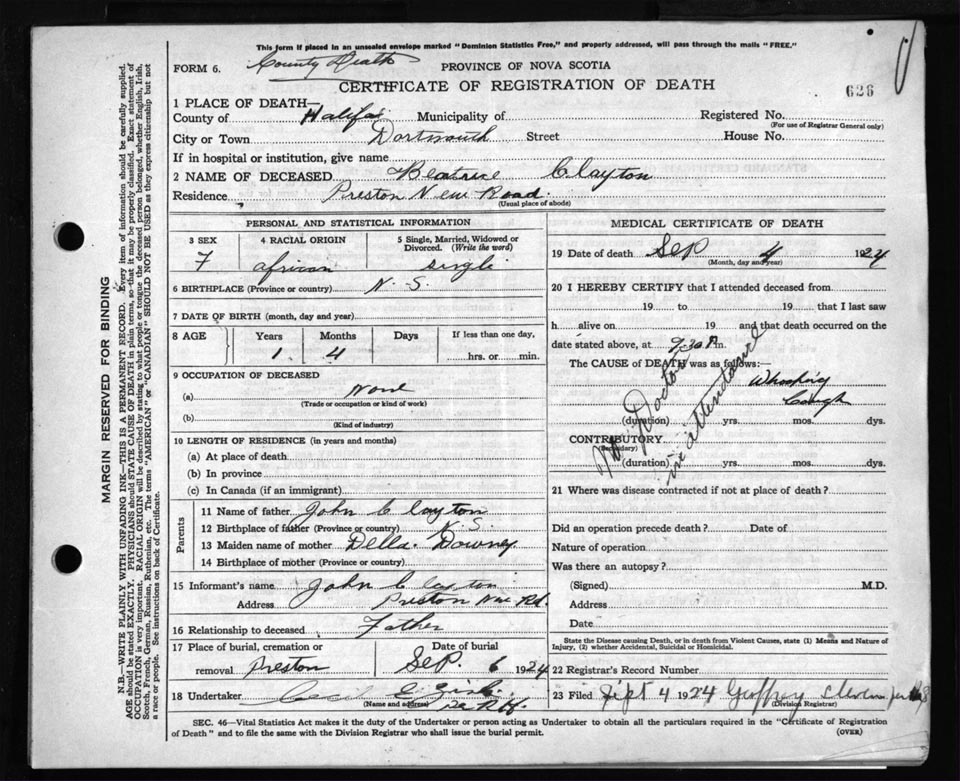 This form if placed in an unsealed envelope marked "Dominion Statistics Free," and properly addressed, will pass through the mails "FREE."
FORM 6. County Death PROVINCE OF NOVA SCOTIA
CERTIFICATE OF REGISTRATION OF DEATH
626
1 PLACE OF DEATH—
County of Halifax Municipality of Registered No.
(For use of Registrar General only)
City or Town Dartmouth Street House No.
If in hospital or institution, give name
2 NAME OF DECEASED Beatrice Clayton
Residence Preston New Road
(Usual place of abode)
PERSONAL AND STATISTICAL INFORMATION
3 SEX 4 RACIAL ORIGIN 5 Single, Married, Widowed or Divorced. (Write the word)
F african single
6 BIRTHPLACE (Province or country) N. S.
7 DATE OF BIRTH (month, day and year)
8 AGE Years Months Days If less than one day,
1 4 hrs. or min.
9 OCCUPATION OF DECEASED
(a) None
(Trade or occupation or kind of work)
(b)
(Kind of industry)
10 LENGTH OF RESIDENCE (in years and months)
(a) At place of death
(b) In province
(c) In Canada (if an immigrant)
Parents
11 Name of father John Clayton
12 Birthplace of father (Province or country) N. S.
13 Maiden name of mother Della Downey
14 Birthplace of mother (Province or country)
15 Informant's name John Clayton
Address Preston New Rd.
16 Relationship to deceased Father
17 Place of burial, cremation or Date of burial
removal Preston Sep. 6 1924
18 Undertaker Cecil E.
(Name and address)
MEDICAL CERTIFICATE OF DEATH
19 Date of death Sep 4 1924
(Month, day and year)
20 I HEREBY CERTIFY that I attended deceased from
19 to 19 that I last saw
h alive on 19 and that death occurred on
date stated above, at 9.30 P.m.
The CAUSE of DEATH was as follows:—
Whooping
Cough
(duration) yrs. mos. dys.
CONTRIBUTORY
(Secondary)
(duration) yrs. mos. dys.
No Doctor
in attendance
21 Where was disease contracted if not at place of death?
Did an operation precede death? Date of
Nature of operation
Was there an autopsy?
(Signed) M.D.
Address
Date
State the Disease causing Death, or in death from Violent Causes, state (1) Means and Nature of Injury, (2) whether Accidental, Suicidal or Homicidal.
22 Registrar's Record Number
23 Filed Sept 4 1924 Geoffrey
(Division Registrar)
SEC. 46—Vital Statistics Act makes it the duty of the Undertaker or person acting as Undertaker to obtain all the particulars required in the "Certificate of Registration
of Death" and to file the same with the Division Registrar who shall issue the burial permit. (OVER)
MARGIN RESERVED FOR BINDING
N.B.—WRITE PLAINLY WITH UNFADING INK—THIS IS A PERMANENT RECORD. Every item of information should be carefully supplied.
AGE should be stated EXACTLY. PHYSICIANS should STATE CAUSE OF DEATH in plain terms, so that it may be properly classified. Exact statement of
OCCUPATION is very important. RACIAL ORIGIN will be described by stating to what people or tongue the deceased person belonged, whether English, Irish,
Scotch, French, German, Russian, Ruthenian, etc. The terms "AMERICAN" or "CANADIAN" SHOULD NOT BE USED as they express citizenship but not
a race or people. See instructions on back of Certificate.